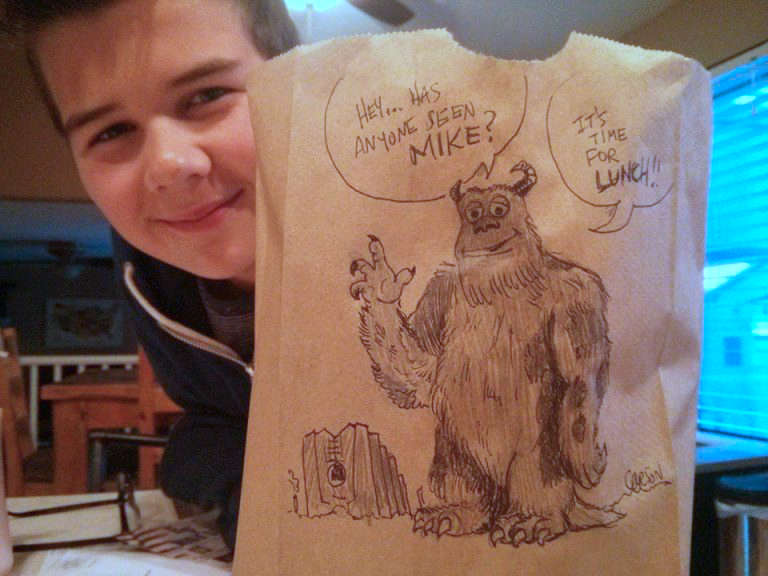 HEY... HAS
ANYONE SEEN
MIKE?
IT'S
TIME
FOR
LUNCH!!